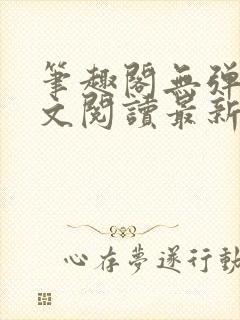 筆趣閣無彈
文閱讀最新
心存夢遂行動